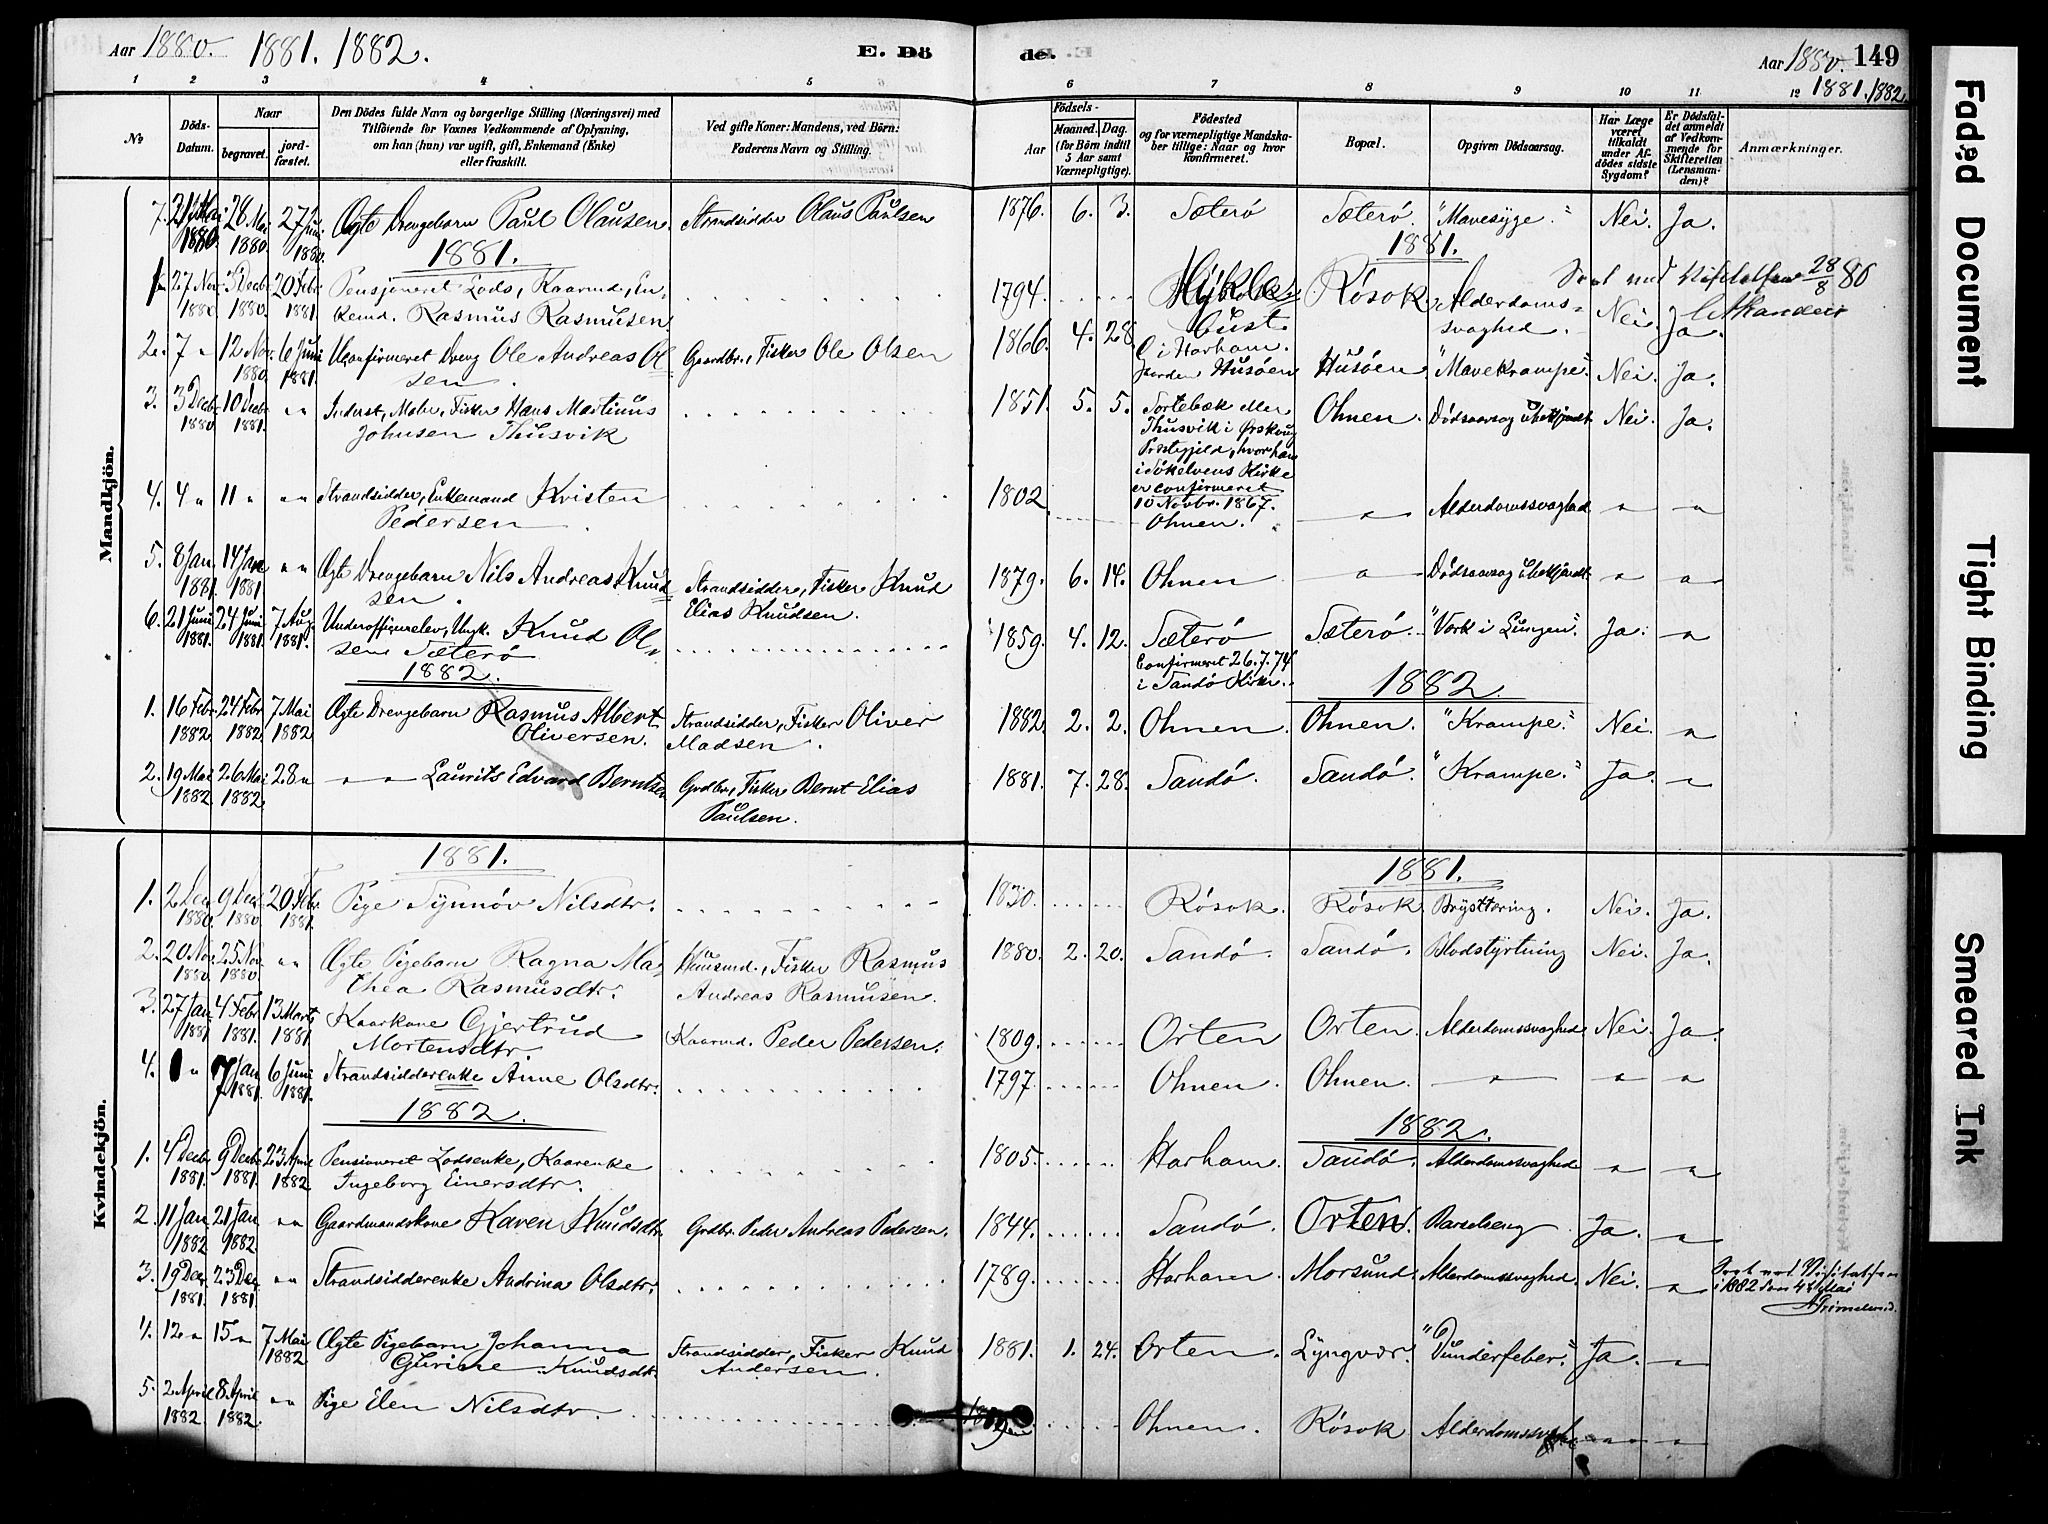 Aar 1880. 1881. 1882.
E. Dö
de.
Aar 1880. 149
1881. 1882
1 2 3 4 5
6 7 8 9 10 11 12
No
Döds-Datum.
Naar
begravet.
jord-fæstet.
Den Dödes fulde Navn og borgerlige Stilling (Næringsvei) med
Tilföiende for Voxnes Vedkommende af Oplysning,
om han (hun) var ugift, gift, Enkemand (Enke)
eller fraskilt.
Ved gifte Koner: Mandens, ved Börn:
Faderens Navn og Stilling.
Födsels-
Aar
Maaned. Dag.
(for Börn indtil
5 Aar samt
Værnepligtige).
Födested
og for værnepligtige Mandska-
ber tillige: Naar og hvor
konfirmeret.
Bopæl.
Opgiven Dödsaarsag.
Har Læge
været
tilkaldt
under Af-
dödes sidste
Sygdom?
Er Dödsfal-
det anmeldt
af Vedkom-
mende for
Skifteretten
(Lensman-
den)?
Anmærkninger.
Mandkjön.
7. 21 Mai 1880. 28 Mai 1880. 27 Juni 1880. Ægte Drengebarn Paul Olausen. Strandsidder Olaus Paulsen 1876. 6. 3. Sæterö Sæterö. "Mavesyge." Nei. Ja.
1881.
1881.
1. 27 Nov. 1880 3 Decbr. 1880. 20 Febr. 1881. Pensjoneret Lods, Kaarmd., En-
kemd. Rasmus Rasmusen. 1794. Rösok. Alderdoms-
svaghed. Nei. Ja.
28/8 80
2. 7 " 12 Nov. 1880. 6 Juni 1881. Uconfirmeret Dreng Ole Andreas Ol-
sen. Gaardbr., Fisker Ole Olsen 1866. 4. 28. i Harham.
Husöen Husöen. "Mavekrampe." Nei. Ja.
3. 3 Decbr. 1880 10 Decbr. 1881. " Inderst, Maler, Fisker Hans Martinus
Johnsen Thusvik 1851. 5. 5. Sortebæk eller
Thusvik i Ørskoug
Præstegjeld, hvor han
i Sökelvens Kirke
er confirmeret
10 Novbr. 1867. Ohnen. Dödsaarsag ubekjendt. Nei. Ja.
4. 4 " 11 " " " Strandsidder, Enkemand Kristen
Pedersen. 1802. Ohnen. " Alderdomssvaghed " "
5. 8 Jan. 1881. 14 Jan. 1881 " " Ægte Drengebarn Nils Andreas Knud-
sen. Strandsidder, Fisker Knud
Elias Knudsen. 1879. 6. 14. Ohnen " Dödsaarsag ubekjendt. " "
6. 21 Juni 1881. 24 Juni 1881. 7 Aug. 1881. Underofficerelev, Ungk. Knud Ol-
sen Sæterö 1859. 4. 12. Sæterö
Confirmeret 26.7.74
i Sandö Kirke. Sæterö. "Værk i Lungen." Ja. "
1882.
1882.
1. 16 Febr. 1882 24 Febr. 1882. 7 Mai 1882 Ægte Drengebarn Rasmus Albert
Oliversen. Strandsidder, Fisker Oliver
Madsen. 1882. 2. 2. Ohnen. Ohnen. "Krampe." Nei. "
2. 19 Mai 1882. 26 Mai 1882. 28 " " " Laurits Edvard Berntsen Grdbr., Fisker Bernt Elias
Paulsen. 1881. 7. 28. Sandö. Sandö. "Krampe." Ja. "
Kvindekjön.
1881.
1881.
1. 2 Dec. 1880. 9 Dec. 1880. 20 Febr. 1881. Pige Synnöv Nilsdtr. 1830. Rösok. Rösok. Brysttæring. Nei. Ja.
2. 20 Nov. 1880 25 Nov. 1880. " " Ægte Pigebarn Ragna Ma-
thea Rasmusdtr. Huusmd., Fisker Rasmus
Andreas Rasmusen. 1880. 2. 20. Sandö. Sandö. Blodstyrtning Nei. Ja.
3. 27 Jan. 1881 4 Febr. 1881. 13 Marts 1881. Kaarkone Gjertrud
Mortensdtr. Kaarmd. Peder Pedersen. 1809. Orten Orten. Alderdomssvaghed Nei. Ja.
4. 1 " 7 Jan. 1881. 6 Juni 1881. Strandsidderenke Anne Olsdtr. 1797. Ohnen. Ohnen. " " "
1882.
1882.
1. 4 Decbr. 1881. 9 Decbr. 1881. 23 April 1882 Pensioneret Lodsenke, Kaarenke
Ingeborg Einersdtr. 1805. Harham. Sandö. Alderdomssvaghed " "
2. 11 Jan. 1882 21 Jan. 1882. " " Gaardmandskone Karen Knudsdtr. Grdbr. Peder Andreas Pedersen. 1844. Sandö. Orten. Barselseng Ja. "
3. 19 Dec. 1881. 23 Dec. 1881. " " Strandsidderenke Andrina Olsdtr. 1789. Harham. Morsund. Alderdomssvaghed. Nei. " Seet ved Visitatsen
i 1882 den 4 Mai
4. 12 " 15 " 7 Mai 1882 Ægte Pigebarn Johanna
Gurine Knudsdtr. Strandsidder, Fisker Knud
Andersen. 1881. 1. 24. Orten. Lyngvær. "Dunderfeber." Ja. "
5. 2 April 1882. 8 April 1882. " " Pige Elen Nilsdtr. Ohnen. Rösok " "
Faded Document
Tight Binding
Smeared Ink